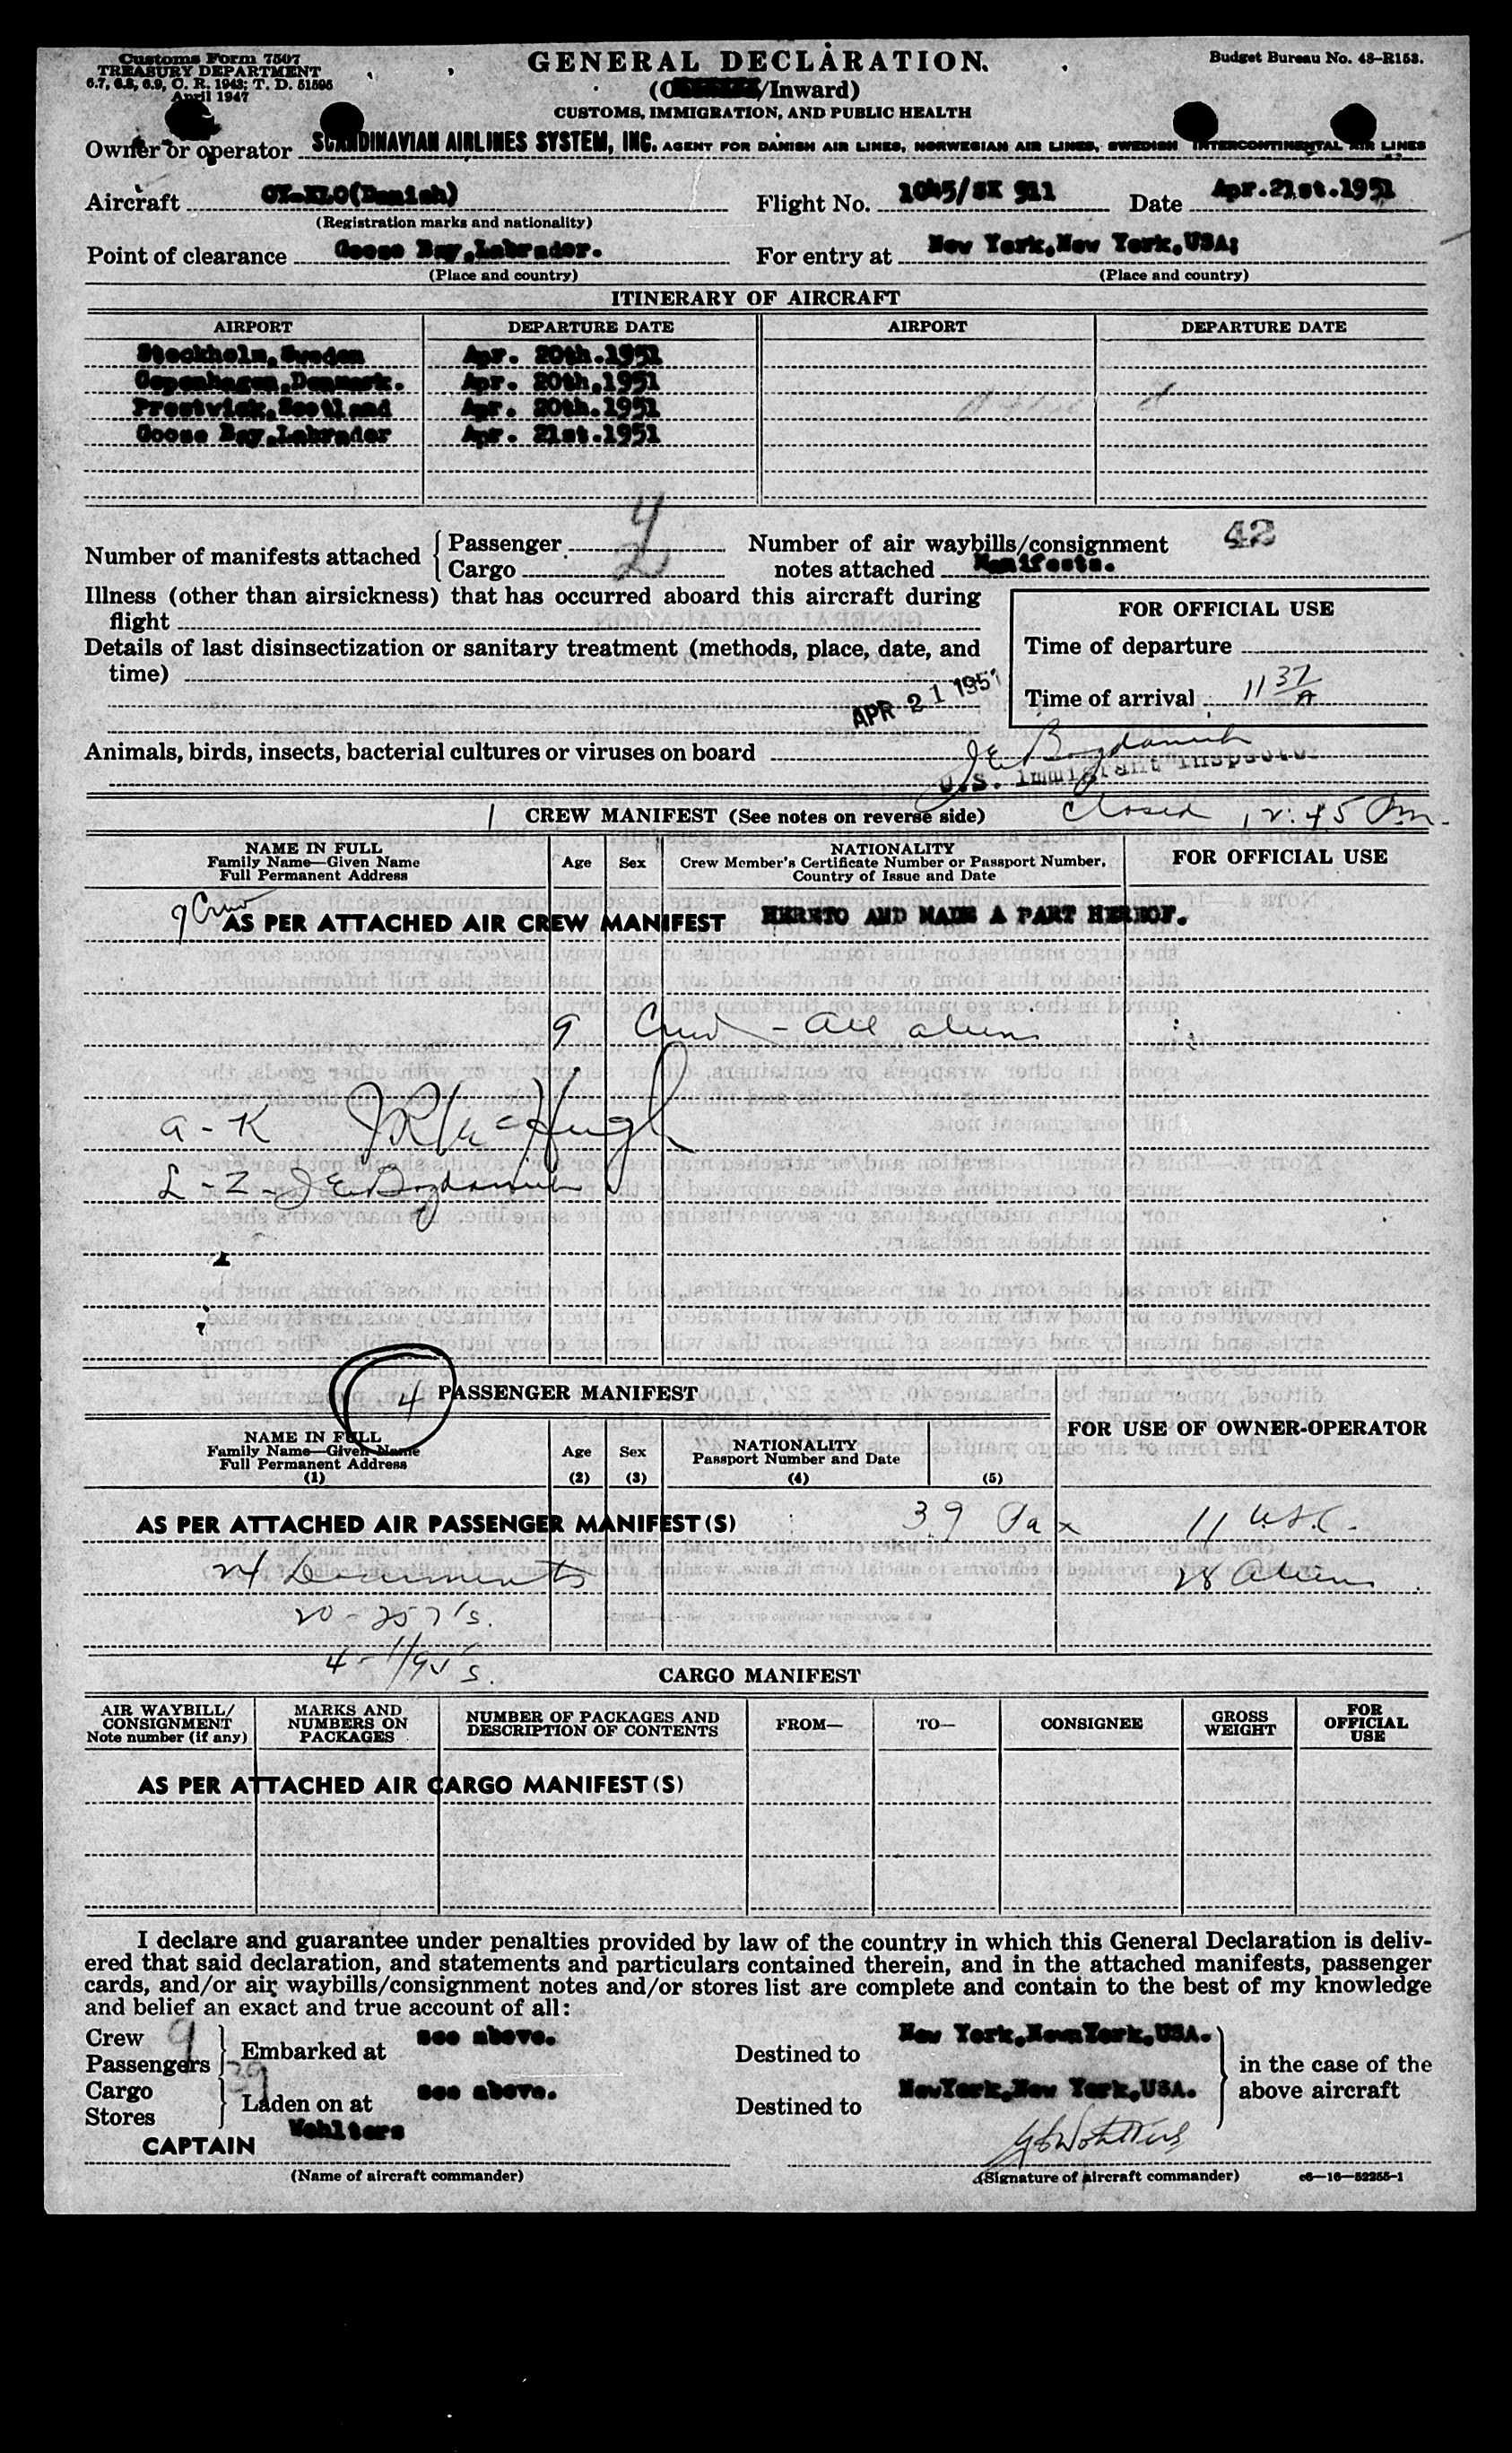 Customs Form 7507
TREASURY DEPARTMENT
6.7, 6.8, 6.9, C. R. 1943; T. D. 51595
April 1947
GENERAL DECLARATION
(/Inward)
CUSTOMS, IMMIGRATION, AND PUBLIC HEALTH
Budget Bureau No. 48-R153.
Owner or operator SCANDINAVIAN AIRLINES SYSTEM, INC. AGENT FOR DANISH AIR LINES, NORWEGIAN AIR LINES, SWEDISH INTERCONTINENTAL AIR LINES
Aircraft OY-KLO(Danish) Flight No. 1045/SK 911 Date Apr.21st.1951
(Registration marks and nationality)
Point of clearance Goose Bay,Labrador. For entry at New York,New York,USA;
(Place and country) (Place and country)
ITINERARY OF AIRCRAFT
AIRPORT DEPARTURE DATE AIRPORT DEPARTURE DATE
Stockholm,Sweden Apr. 20th.1951
Copenhagen,Denmark. Apr. 20th.1951
Prestwick,Scotland Apr. 20th.1951
Goose Bay,Labrador Apr. 21st.1951
Number of manifests attached { Passenger 4
Cargo 2
Number of air waybills/consignment 42
notes attached Manifests.
Illness (other than airsickness) that has occurred aboard this aircraft during
flight
Details of last disinsectization or sanitary treatment (methods, place, date, and
time)
FOR OFFICIAL USE
Time of departure
Time of arrival 11 37 A
APR 21 1951
Animals, birds, insects, bacterial cultures or viruses on board J E Bogdanich
U.S. Immigrant Inspector
1 CREW MANIFEST (See notes on reverse side) Closed 12:45 Pm.
NAME IN FULL
Family Name—Given Name
Full Permanent Address
Age Sex
NATIONALITY
Crew Member's Certificate Number or Passport Number,
Country of Issue and Date
FOR OFFICIAL USE
9 Crew
AS PER ATTACHED AIR CREW MANIFEST HERETO AND MADE A PART HEREOF.
9 Crew - All aliens
a - K J R MacHugh
L - Z - J E Bogdanich
4 PASSENGER MANIFEST
NAME IN FULL
Family Name—Given Name
Full Permanent Address
(1)
Age
(2)
Sex
(3)
NATIONALITY
Passport Number and Date
(4) (5)
FOR USE OF OWNER-OPERATOR
AS PER ATTACHED AIR PASSENGER MANIFEST(S) 39 Pax 11 USC.
24 Documents 28 Aliens
20 - 257's.
4 -
CARGO MANIFEST
AIR WAYBILL/
CONSIGNMENT
Note number (if any)
MARKS AND
NUMBERS ON
PACKAGES
NUMBER OF PACKAGES AND
DESCRIPTION OF CONTENTS
FROM— TO— CONSIGNEE
GROSS
WEIGHT
FOR
OFFICIAL
USE
AS PER ATTACHED AIR CARGO MANIFEST(S)
I declare and guarantee under penalties provided by law of the country in which this General Declaration is deliv-
ered that said declaration, and statements and particulars contained therein, and in the attached manifests, passenger
cards, and/or air waybills/consignment notes and/or stores list are complete and contain to the best of my knowledge
and belief an exact and true account of all:
Crew 9
Passengers 39 } Embarked at see above. Destined to New York,NewnYork,USA.
Cargo
Stores } Laden on at see above. Destined to NewYork,New York,USA.
in the case of the
above aircraft
CAPTAIN Wohlters
(Name of aircraft commander) (Signature of aircraft commander) c6—16—52255-1